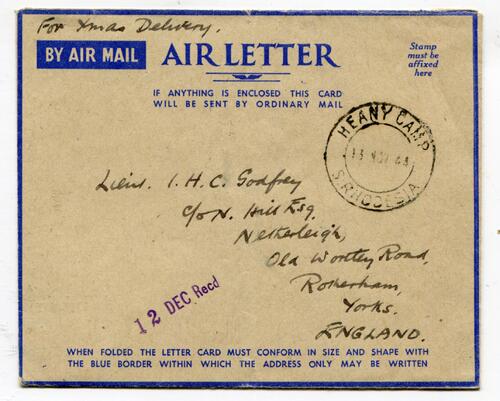 For Xmas Delivery.
BY AIR MAIL
AIR LETTER
Stamp
must be
affixed
here
IF ANYTHING IS ENCLOSED THIS CARD
WILL BE SENT BY ORDINARY MAIL
HEANY CAMP
13 NOV 44
S. RHODESIA
Lieut. I. H. C. Godfrey
c/o N. Hill Esq.
Netherleigh,
Old Wortley Road,
Rotherham,
Yorks.
ENGLAND.
12 DEC Recd
WHEN FOLDED THE LETTER CARD MUST CONFORM IN SIZE AND SHAPE WITH
THE BLUE BORDER WITHIN WHICH THE ADDRESS ONLY MAY BE WRITTEN